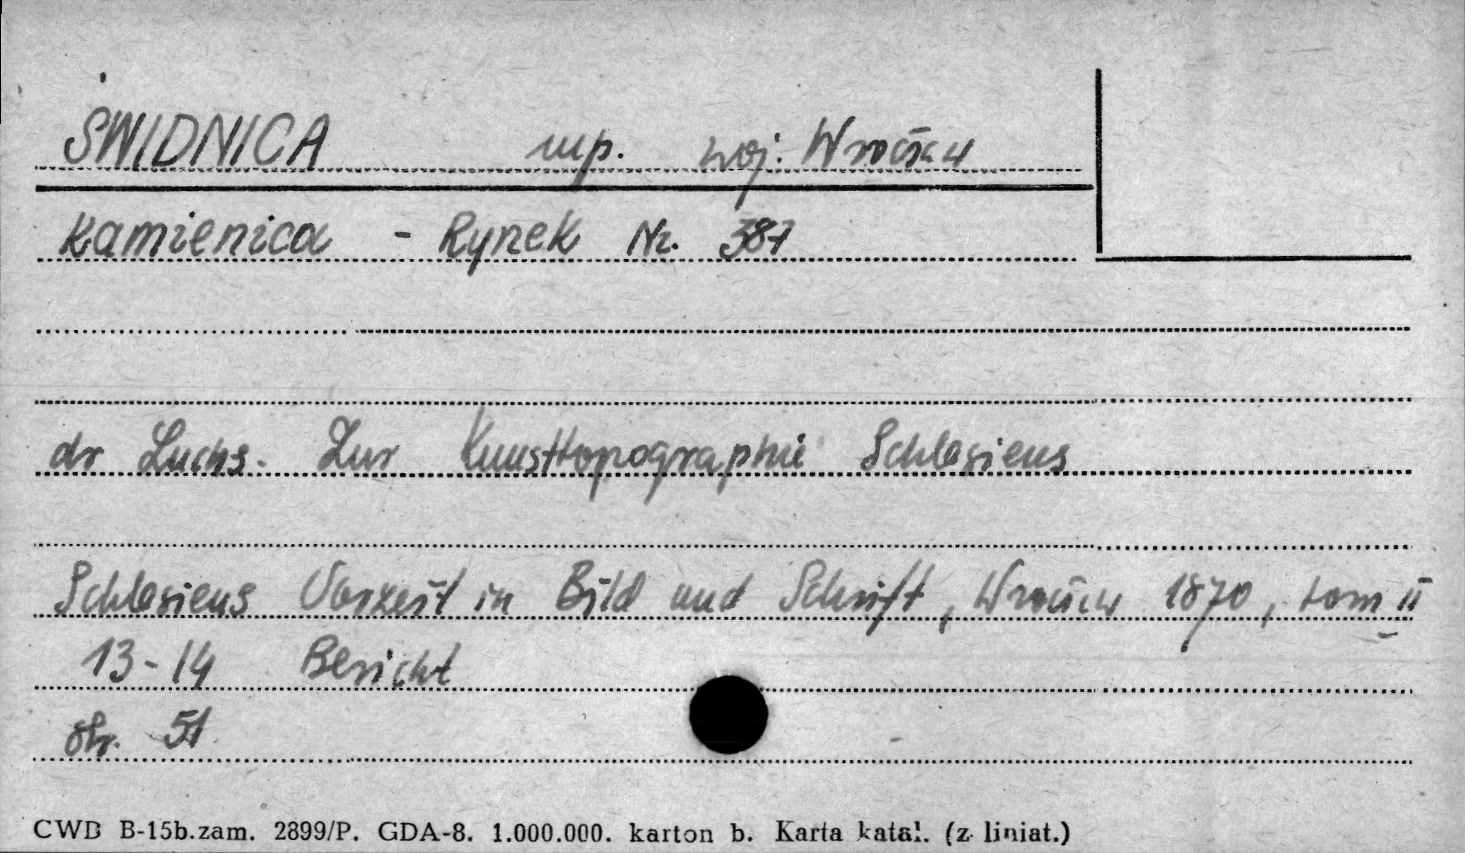 ŚWIDNICA mp. woj. Wrocław
Kamienica - Rynek Nr. 387
dr Luchs. Zur Kunsttopographie Schlesiens
Schlesiens Vorzeit in Bild und Schrift, Wrocław 1870, tom II
13-14 Bericht
str. 51
CWD B-15b.zam. 2899/P. GDA-8. 1.000.000. karton b. Karta katal. (z liniat.)